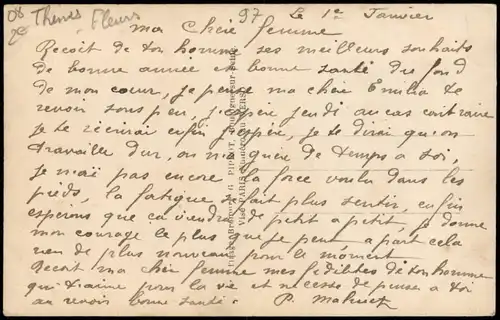 08
Themes Fleurs
97 Le 1e Janvier
Ma Chère femme
Recoit de ton homme ses meilleurs souhaits
de bonne année et bonne santé du fond
de mon coeur, je pense ma chère Emilia te
revoir sous peu, j'espère jeudi au cas contraire
je te récrirai enfin j'espère, je te dirai qu'on
travaille dur, on n'a guère de temps a soi,
je n'ai pas encore la force voulu dans les
pieds, la fatigue se fait plus sentir, enfin
esperons que ca viendra de petit a petit, je donne
mon courage le plus que je peut a part cela
rien de plus nouveau pour le moment
Recoit ma chère femme mes fidélités de ton homme
qui t'aime pour la vie et necesse de penser a toi
au revoir bonne santé. P.
G. PIPROT
Visé PARIS